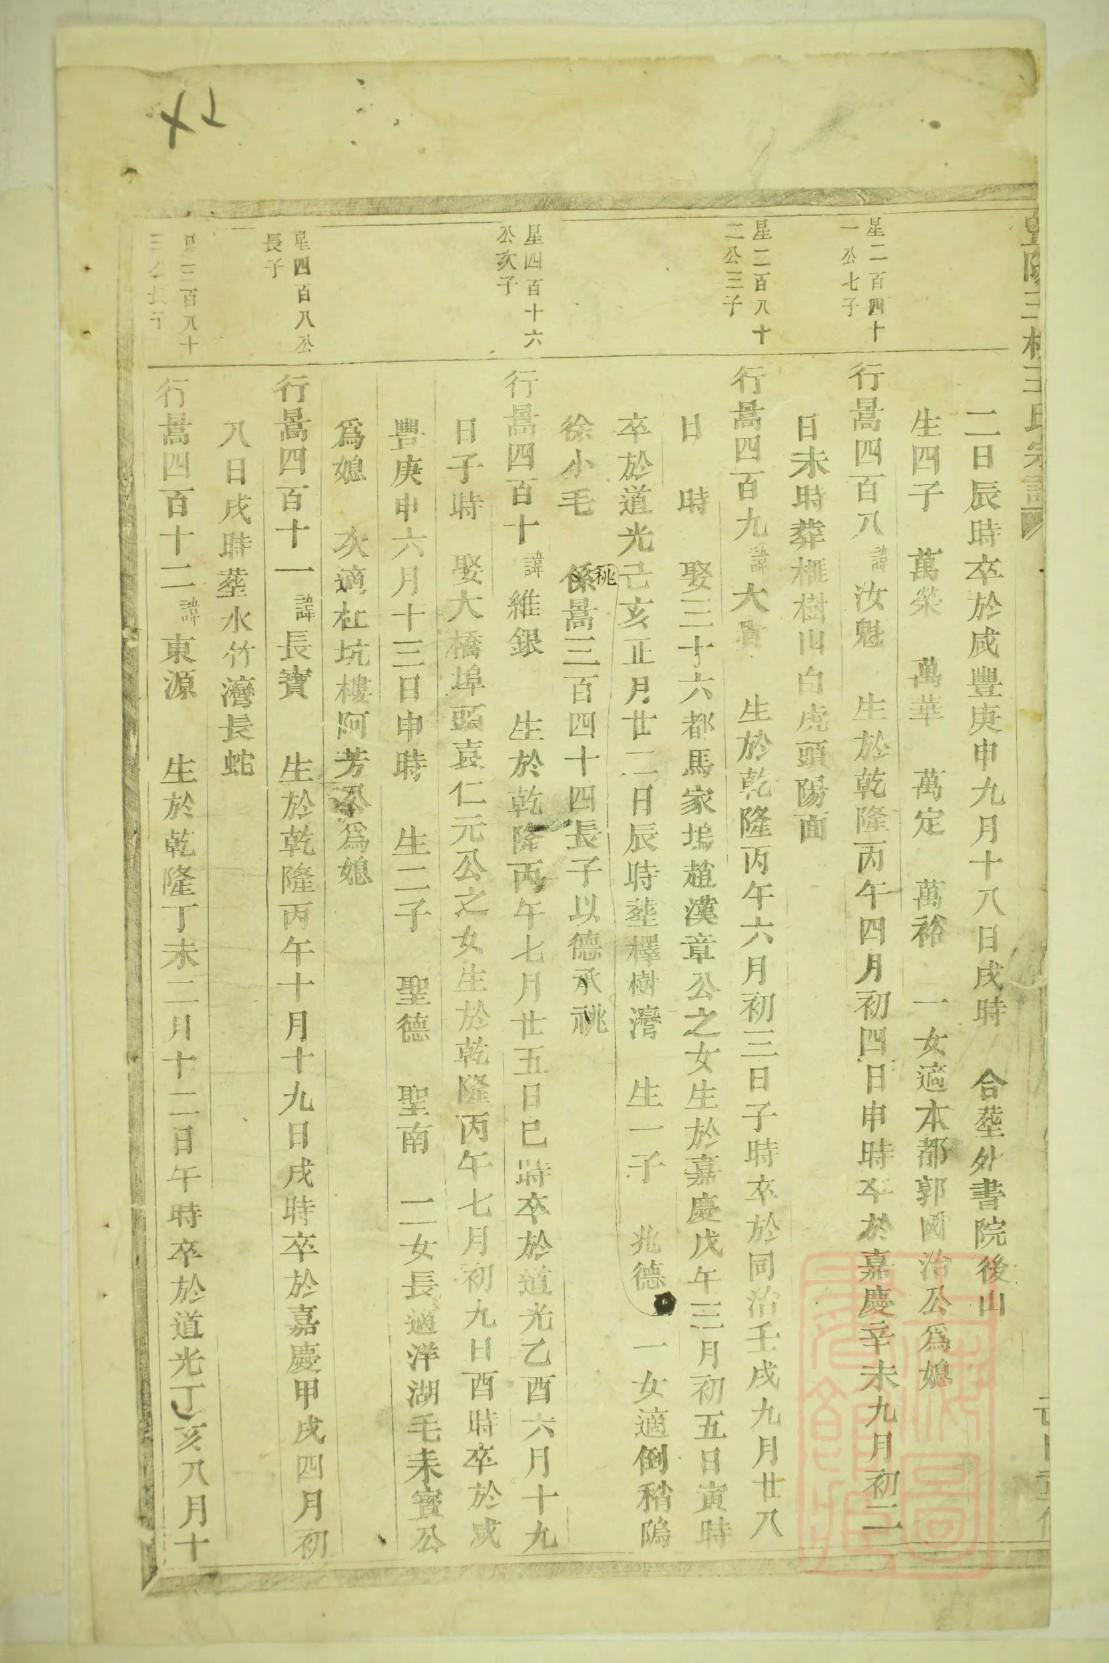 二日辰時卒於咸豐庚申九月十八日戌時 合塟外書院後山
生四子 萬榮 萬華 萬定 萬裕 一女適本都郭國治公爲媳
星二百四十
一公七子
行暠四百八諱汝魁 生於乾隆丙午四月初四日申時卒於嘉慶辛未九月初二
日未時葬榧樹山白虎頭陽面
星二百八十
二公三子
行暠四百九諱大賓 生於乾隆丙午六月初三日子時卒於同治壬戌九月廿八
日 時 娶三十六都馬家塢趙漢章公之女生於嘉慶戊午三月初五日寅時
卒於道光己亥正月廿二日辰時塟檡樹灣 生一子 兆德 一女適倒稍隖
徐小毛 係暠三百四十四長子以德承祧
祧
星四百十六
公亥子
行暠四百十諱維銀 生於乾隆丙午七月廿五日巳時卒於道光乙酉六月十九
日子時 娶大橋埠頭袁仁元公之女生於乾隆丙午七月初九日酉時卒於咸
豐庚申六月十三日申時 生二子 聖德 聖南 二女長適洋湖毛耒寳公
爲媳 次適杜坑樓阿芳公爲媳
星四百八公
長子
行暠四百十一諱長寶 生於乾隆丙午十月十九日戌時卒於嘉慶甲戌四月初
八日戌時塟水竹灣長蛇
星三百八十
行暠四百十二諱東源 生於乾隆丁未二月十二日午時卒於道光丁亥八月十